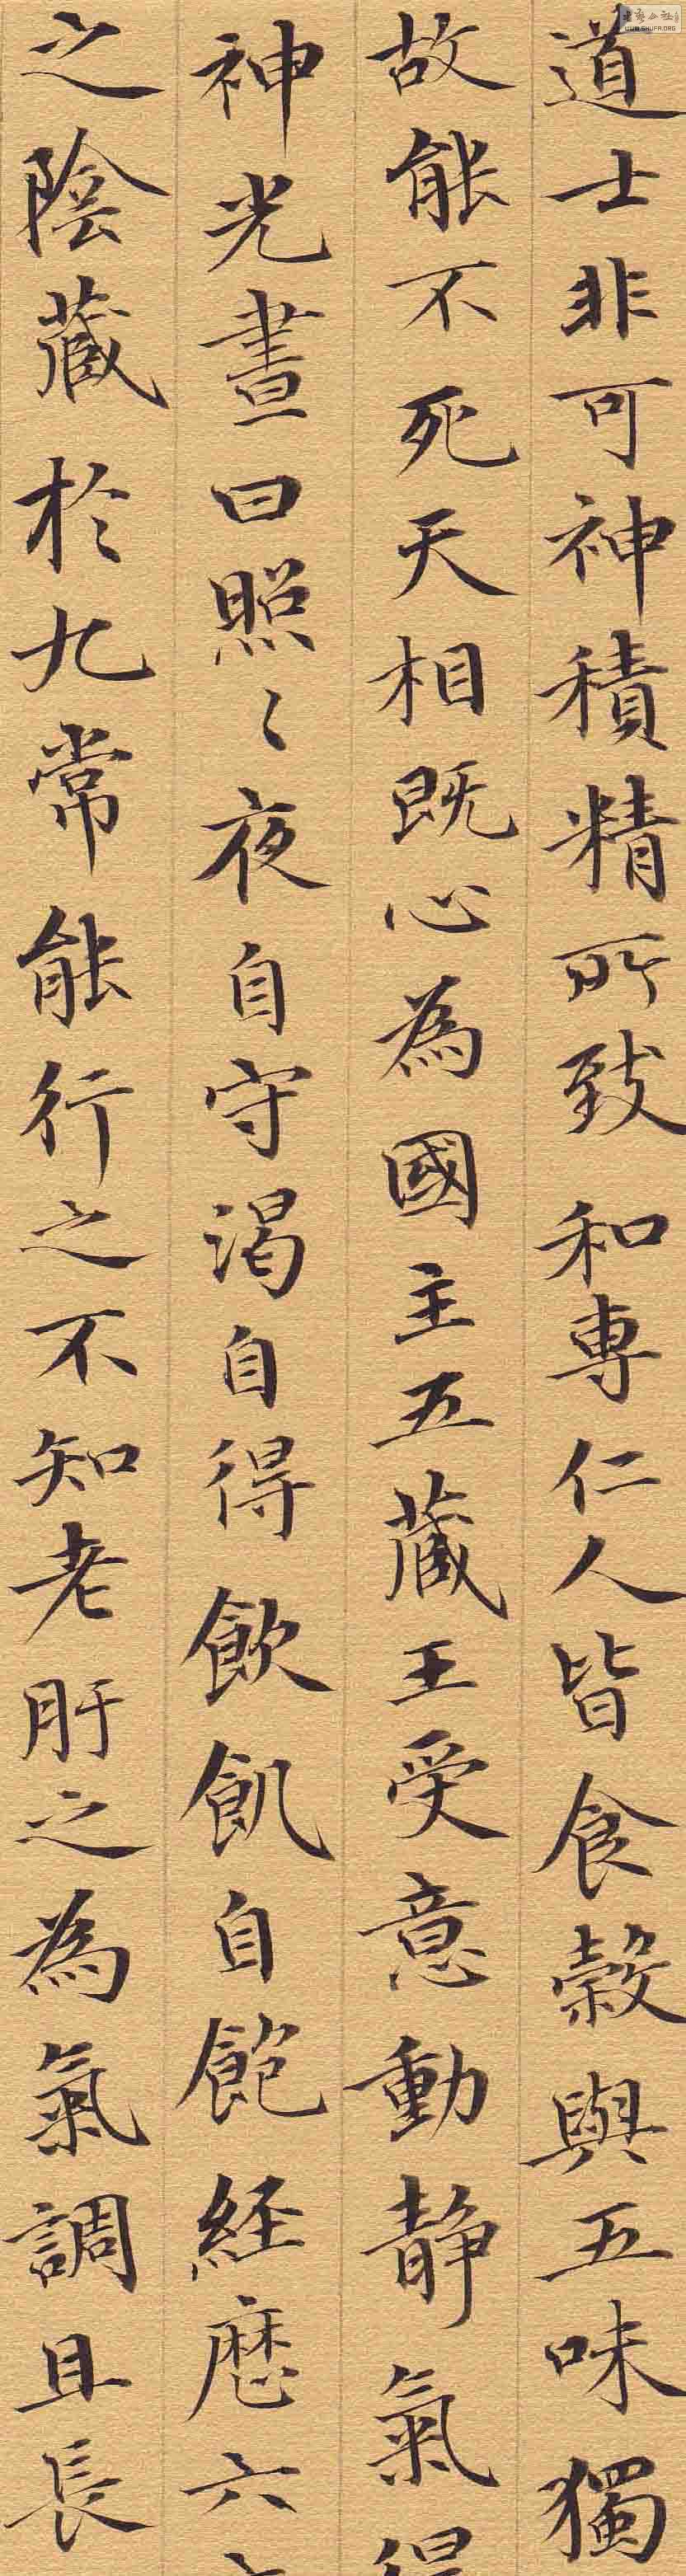 道士非可神積精所致和專仁人皆食榖與五味獨
故能不死天相既心為國主五藏王受意動静氣得
神光晝曰照〻夜自守渴自得飲飢自飽経歴六
之陰藏於九常能行之不知老肝之為氣調且長
WWW.SHUFA.ORG